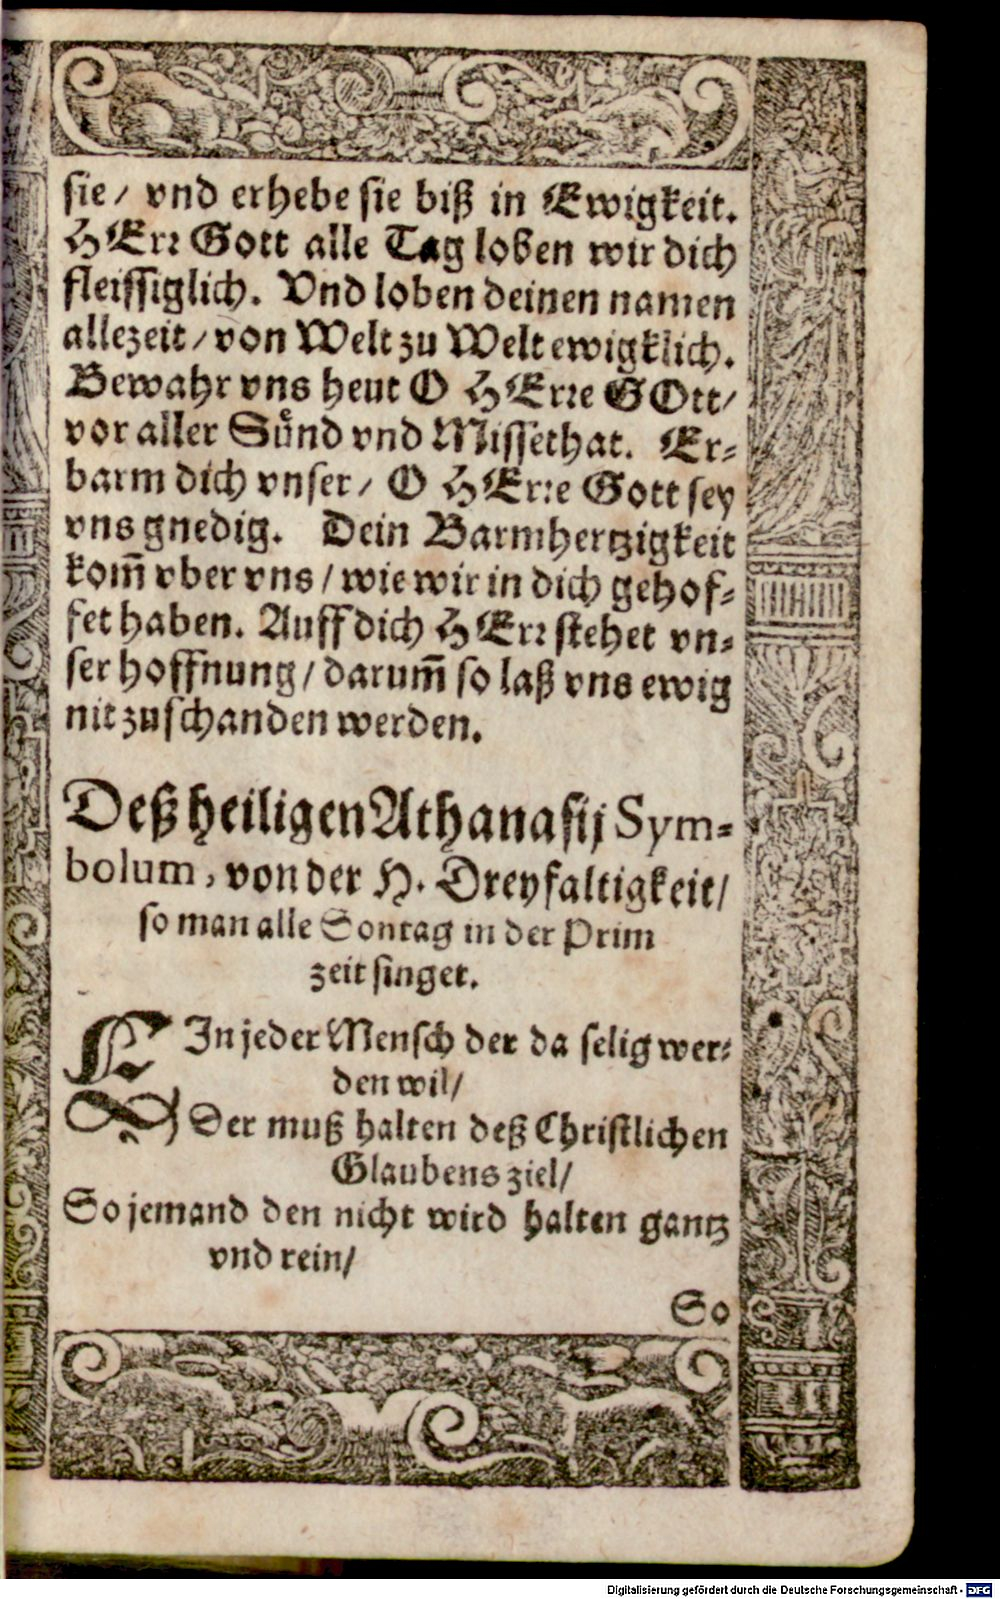 sie/ vnd erhebe sie biß in Ewigkeit.
HErr Gott alle Tag loben wir dich
fleissiglich. Vnd loben deinen namen
allezeit/ von Welt zu Welt ewigklich.
Bewahr vns heut O HErre GOtt/
vor aller Sůnd vnd Missethat. Er-
barm dich vnser/ O HErre Gott sey
vns gnedig. Dein Barmhertzigkeit
kom̃ vber vns/ wie wir in dich gehof-
fet haben. Auff dich HErr stehet vn-
ser hoffnung/ darum̃ so laß vns ewig
nit zuschanden werden.
Deß heiligen Athanasij Sym-
bolum, von der H. Dreyfaltigkeit/
so man alle Sontag in der Prim
zeit singet.
EIn jeder Mensch der da selig wer-
den wil/
Der muß halten deß Christlichen
Glaubens ziel/
So jemand den nicht wird halten gantz
vnd rein/
So
Digitalisierung gefördert durch die Deutsche Forschungsgemeinschaft - DFG